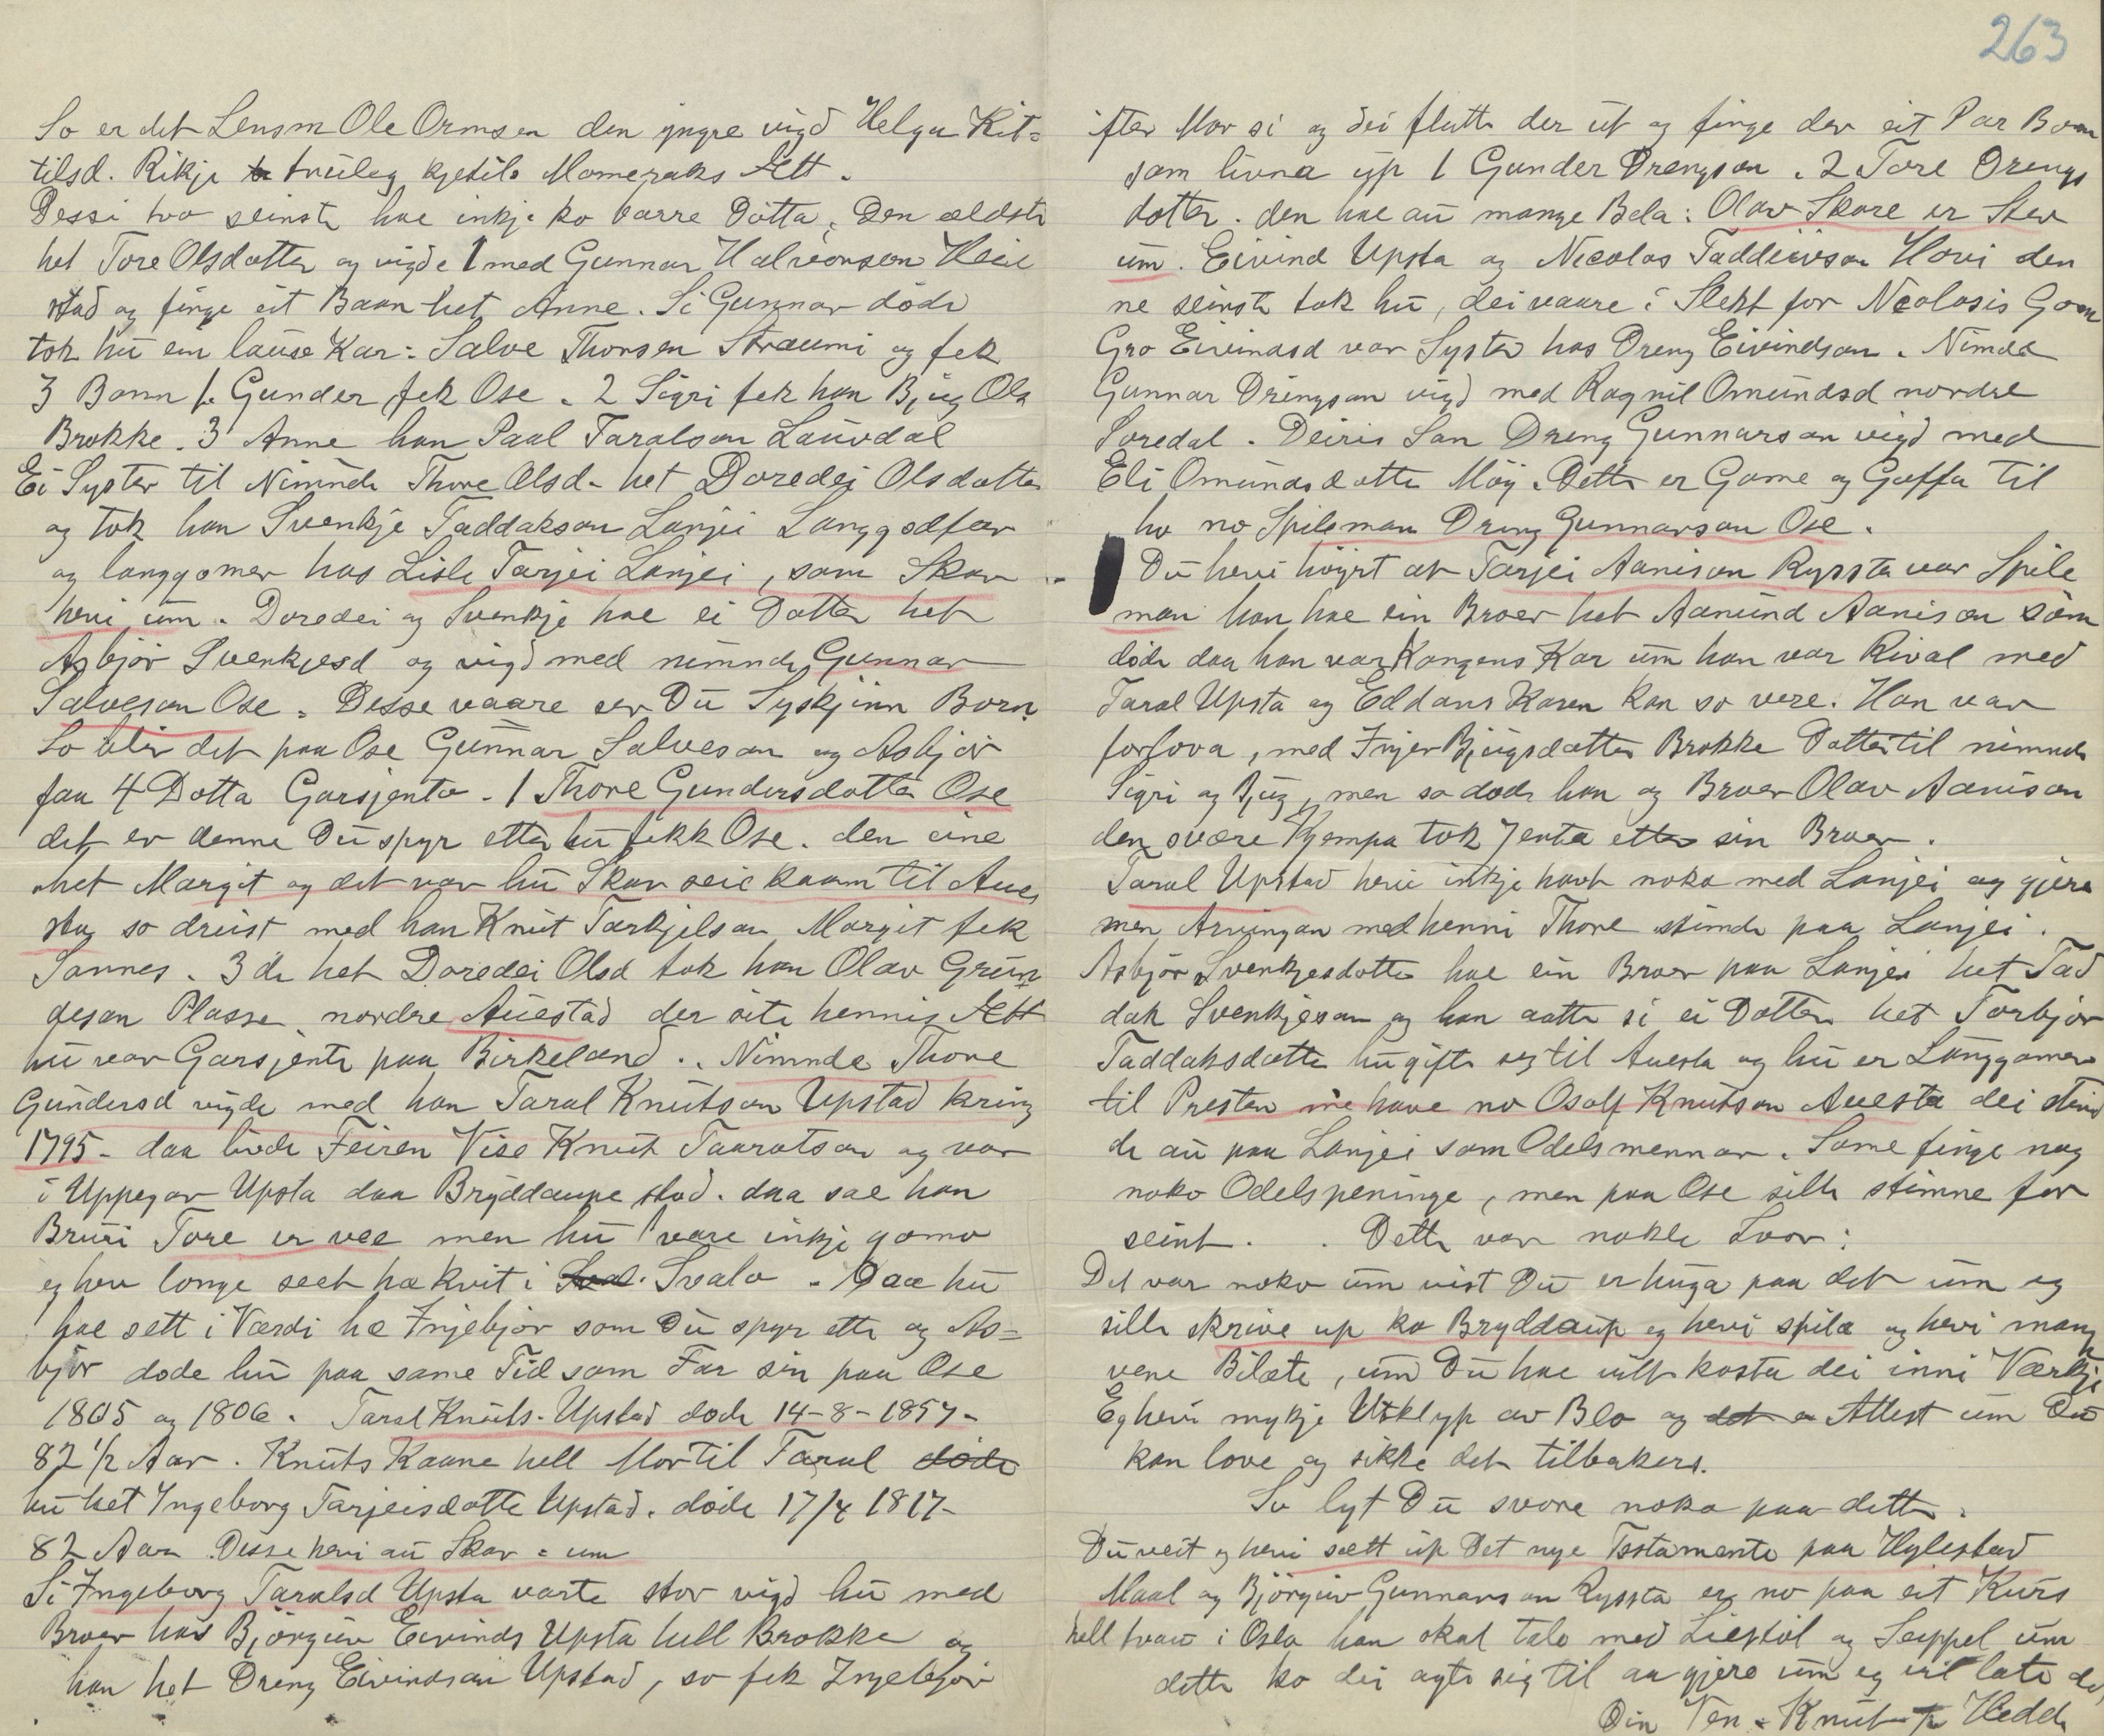 263
So er det Lensm Ole Ormsen den yngre vigd Helga Kit-
tilsd. Rikje truleg kjetils Momeraks Ætt.
Dessi tvo seinste hae inkje ko barre Dotta. Den ældste
het Tore Olsdotter og vigde 1 med Gunnar Halvorsen Heie
stad og finge eit Baan het Anne. Si Gunnar döde
tok hu ein lause Kar: Salve Thorsen Straumi og fek
3 Bonn 1. Gunder fek Ose. 2 Sigri fek han Bjug Ola
Brokke. 3 Anne han Paal Taralson Lauvdal
Ei Syster til Nimnde Thore Olsd. het Doredei Olsdotter
og tok han Svenkje Taddakson Lanjei Langgodfar
og langgomer has Lisle Tarjei Lanjei, som Skar
hevi um. Doredei og Svenkje hae ei Dotter het
Asbjör Svenkjesd og vigd med nimnde Gunnar
Salveson Ose. Desse vaare ser Du Syskjinn Born.
So blir det paa Ose Gunnar Salveson og Asbjör
faa 4 Dotta Garsjento. 1 Thore Gundersdotter Ose
det er denne Du spyr etter hu fekk Ose. den eine
het Margit og det var hu Skar seie kaam til Aue
sta so dreist med han Knut Tarkjelson Margit fek
Sannes. 3de het Doredei Olsd tok han Olav Grun
deson Plasse nordre Auestad der site hennis Ætt
hu var Garsjente paa Birkeland. Nimnde Thore
Gundersd vigde med han Taral Knutson Upstad kring
1795. daa livde Feiren Vise Knut Taaratson og var
i Uppegar Upsta daa Bryddaupe stod. daa sae han
Bruri Tore er vee men hu vare inkje gomo
eg hev longe seet hæ kvit i Svalo. Daa hu
hae sett i Værdi hæ Injebjör som Du spyr ette og As-
björ dode hu paa same Tid som Far sin paa Ose
1805 og 1806. Taral Knuts. Upstad dode 14-8-1857-
82 1/2 Aar. Knuts Kaane hell Mor til Taral döde
hu het Ingeborg Tarjeisdotte Upstad. döde 17/4 1817-
82 Aar. Desse hevi au Skar um
Si Ingeborg Taralsd Upsta varte stor vigd hu med
Broer has Björgúv Eivinds Upsta hell Brokke og
han het Dreng Eivindson Upstad, so fek Ingebjör
ifter Mor si og dei flutte der ut og finge der eit Par Boan
som livna up 1 Gunder Drengson. 2 Tore Drengs
dotter. den hae au mange Bela: Olav Skare er Stev
um. Eivind Upsta og Nicolas Taddeivson Hovi den
ne seinste tok hu, dei vaare i Slekt for Nicolasis Gom
Gro Eivindsd var Syster has Dreng Eivindson. Nimde
Gunnar Drengson vigd med Ragnil Omundsd nordre
Soredal. Deiris Son Dreng Gunnarson vigd med
Eli Omundsdotte Möy. Dette er Gome og Goffa til
ho no Spilemann Dreng Gunnarson Ose.
Du hevi höyrt at Tarjei Aanison Ryssta var Spile
man han hae ein Broer het Aanund Aanison som
döde daa han var Kongens Kar um han var Rival med
Taral Upsta og Eddans Karen kan so vere. Han var
forlova, med Injer Bjugsdotter Brokke Dotter til nimnde
Sigri og Bjug, men so dode han og Broer Olav Aanison
den svære Kjempa tok Jenta etter sin Broer.
Taral Upstad hevi inkje havt noko med Lanjei og gjera
men Arvingan med henni Thore stimde paa Lanjei.
Asbjör Svenkjesdotte hae ein Broer paa Lanjei het Tad
dak Svenkjeson og han aatte si ei Dotter het Torbjör
Taddaksdotte hu gifte seg til Auesta og hu er Langgomer
til Presten me have no Osalf Knutson Auesta dei stim
de au paa Lanjei som Odelsmennar. Some finge nog
noko Odelspeninge, men paa Ose sille stimne for
seint. Dette var nokle Svar:
Det var noko um vist Du er huga paa det um eg
sille skrive up ko Bryddaup eg hevi spila og hevi mange
vene Bilæte, um Du hae vilt kosta dei inni Værkje
Eg hevi mykje Utklyp av Blo og det er Attest um Du
kan love og sikke det tilbakers.
So lyt Du svore noko paa dette.
Du veit eg hevi sætt up Det nye Testamente paa Hylestad
Maal og Björgúv Gunnarson Ryssta er no paa eit Kurs
hell tvau i Oslo han skal tala med Liestöl og Seippel um
dette ko dei agte sig til aa gjere um eg vil late de
Din Ven Knut Hedde